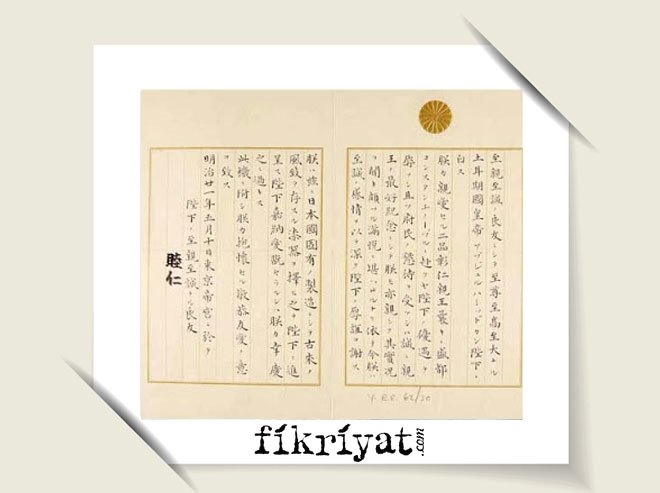 至親至誠ノ良友ニシテ至尊至高至大ナル
土耳期國皇帝アブジュルハミッドカン陛下ニ
白ス
朕カ親愛セル二品彰仁親王曩キニ盛都
コンスタンチノープルニ赴クヤ陛下ノ優遇ヲ
辱フシ且ツ府民ノ懇待ヲ受ケシハ誠ニ親
王ノ最好紀念ニシテ朕モ亦親シク其實況
ヲ聞キ頗ル滿悦ニ堪ヘサルナリ依テ今朕ハ
至誠ノ感情ヲ以テ深ク陛下ノ厚誼ヲ謝ス
朕ハ茲ニ日本國固有ノ製造ニシテ古來ノ
風致ヲ存スル漆器ヲ擇ヒ之ヲ陛下ニ進
呈ス陛下嘉納愛翫セラルレハ朕カ幸慶
之ニ過キス
此機ニ附シ朕カ抱懷セル敬恭友愛ノ意
ヲ致ス
明治廿一年五月十日東京帝宮ニ於テ
陛下ノ至親至誠ナル良友
睦仁
Y.E.E. 62/20
fikriyat.com